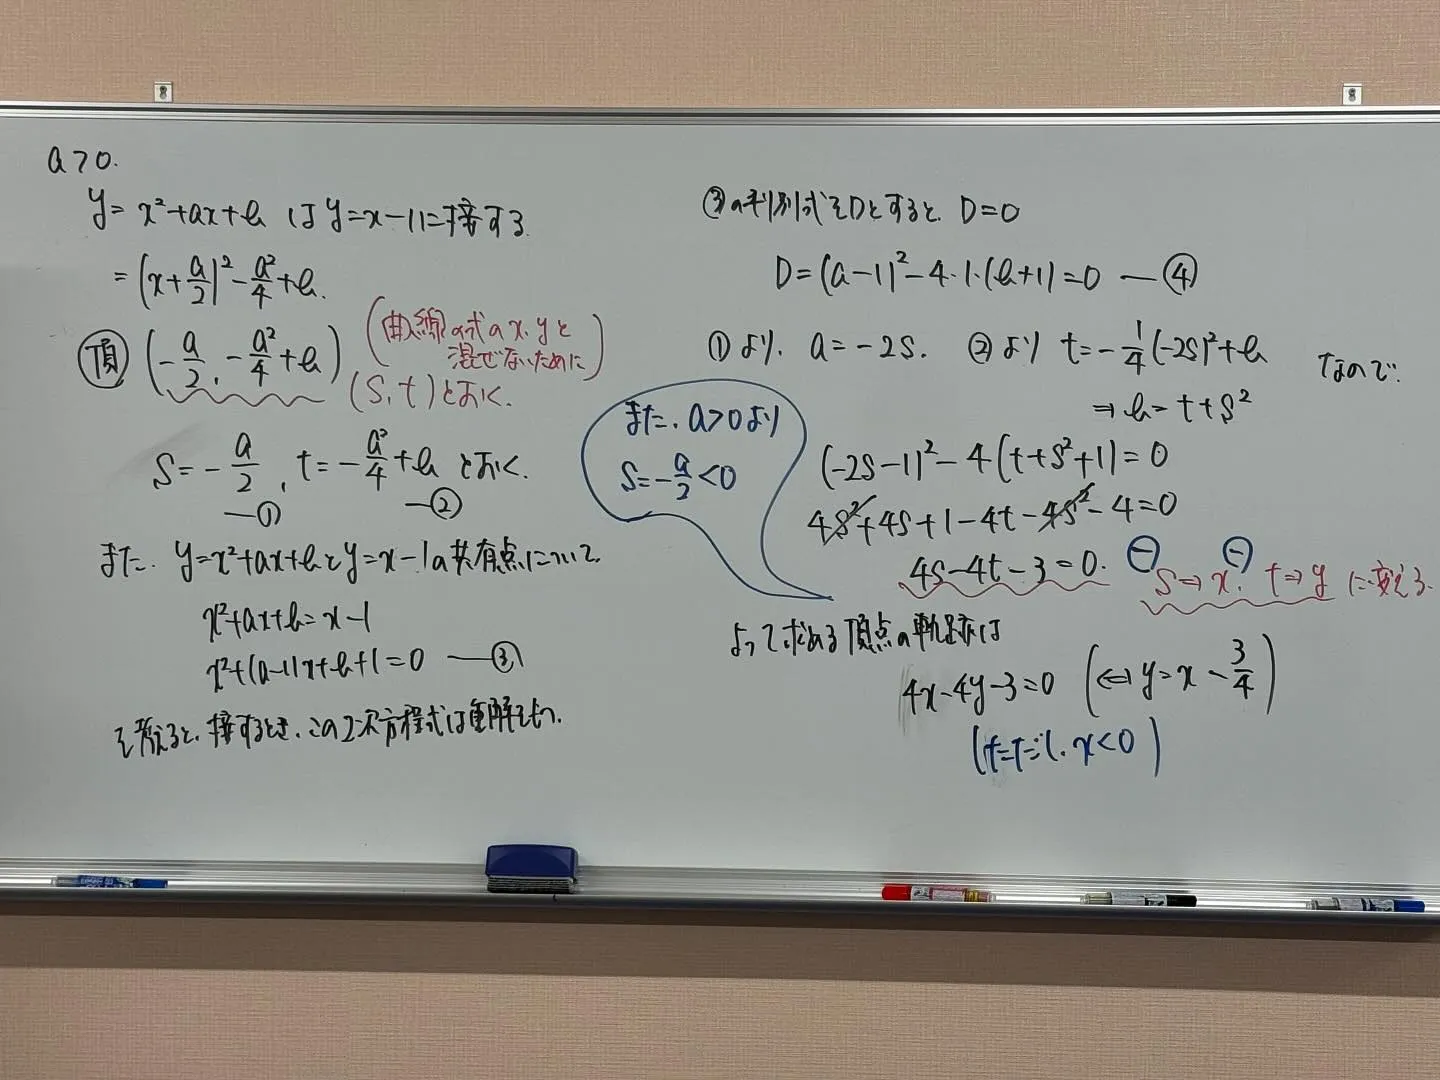 a>0.
y=x²+ax+b は y=x-1に接する
=(x+a/2)²-a²/4+b.
頂 (-a/2, -a²/4+b)
(曲線の式のx,yと
混ぜないために)
(s,t)とおく.
s=-a/2, t=-a²/4+b とおく.
—① —②
また. y=x²+ax+bとy=x-1の共有点について
x²+ax+b=x-1
x²+(a-1)x+b+1=0 —③
を考えると、接するとき、この2次方程式は重解をもつ.
③の判別式をDとすると、D=0
D=(a-1)²-4・1・(b+1)=0 —④
①より. a=-2s. ②より t=-1/4(-2s)²+b なので.
⇒ b=t+s²
また. a>0より
s=-a/2<0
(-2s-1)²-4(t+s²+1)=0
4s²+4s+1-4t-4s²-4=0
4s-4t-3=0.
s⇒x. t⇒y に変える.
よって求める頂点の軌跡は
4x-4y-3=0 (⇔y=x-3/4)
(ただし. x<0)